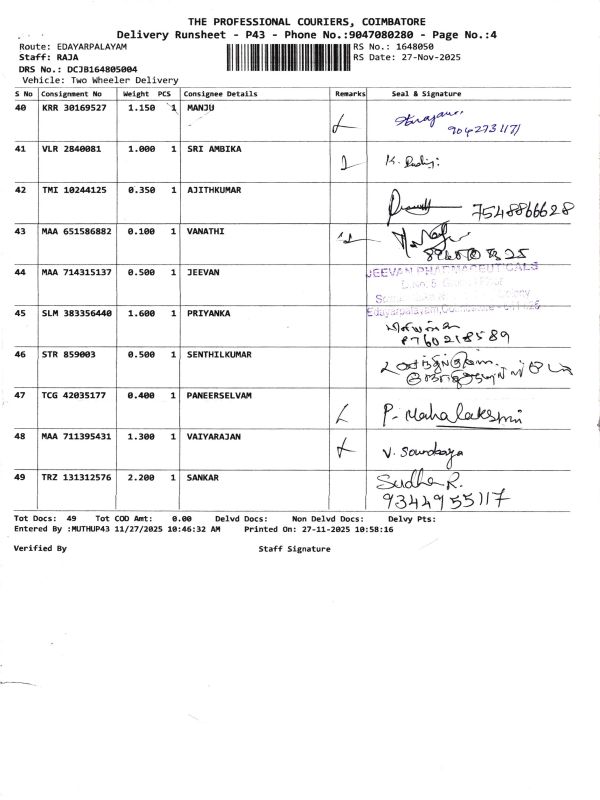 THE PROFESSIONAL COURIERS, COIMBATORE
Delivery Runsheet - P43 - Phone No.:9047080280 - Page No.:4
Route: EDAYARPALAYAM RS No.: 1648050
Staff: RAJA RS Date: 27-Nov-2025
DRS No.: DCJB164805004
Vehicle: Two Wheeler Delivery
S No Consignment No Weight PCS Consignee Details Remarks Seal & Signature
40 KRR 30169527 1.150 1 MANJU
9042731171
41 VLR 2840081 1.000 1 SRI AMBIKA
K.
42 TMI 10244125 0.350 1 AJITHKUMAR
7548866628
43 MAA 651586882 0.100 1 VANATHI
44 MAA 714315137 0.500 1 JEEVAN JEEVAN PHARMACEUTICALS
Edayarpalayam, Coimbatore
45 SLM 383356440 1.600 1 PRIYANKA
8760218589
46 STR 859003 0.500 1 SENTHILKUMAR
47 TCG 42035177 0.400 1 PANEERSELVAM
P. Mahalakshmi
48 MAA 711395431 1.300 1 VAIYARAJAN
V. Soundarya
49 TRZ 131312576 2.200 1 SANKAR Sudha R.
9344955117
Tot Docs: 49 Tot COD Amt: 0.00 Delvd Docs: Non Delvd Docs: Delvy Pts:
Entered By :MUTHUP43 11/27/2025 10:46:32 AM Printed On: 27-11-2025 10:58:16
Verified By Staff Signature